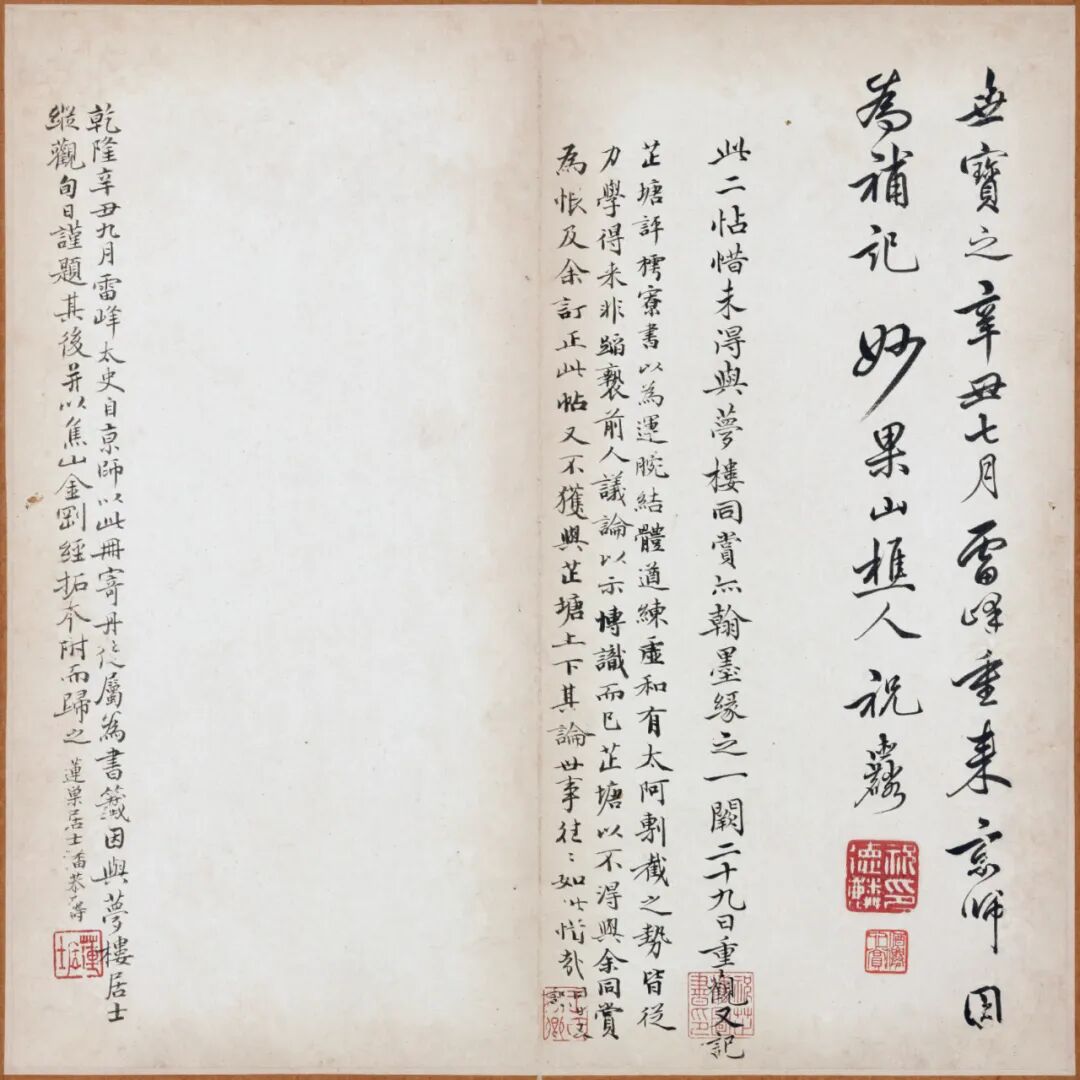 世寶之辛丑七月雷峰重来京師因
為補記 妙果山樵人祝德麟
此二帖惜未得與夢樓同賞亦翰墨緣之一闕二十九日重觀又記
芷塘評樗寮書以為運腕結體遒練虛和有太阿剸截之勢皆從
力學得来非蹈褻前人議論以示博識而已芷塘以不得與余同賞
為恨及余訂正此帖又不獲與芷塘上下其論世事往〻如此惜哉
乾隆辛丑九月雷峰太史自京師以此冊寄丹徒屬為書籤因與夢樓居士
縱觀旬日謹題其後并以焦山金剛經拓本附而歸之 蓮巢居士潘恭壽